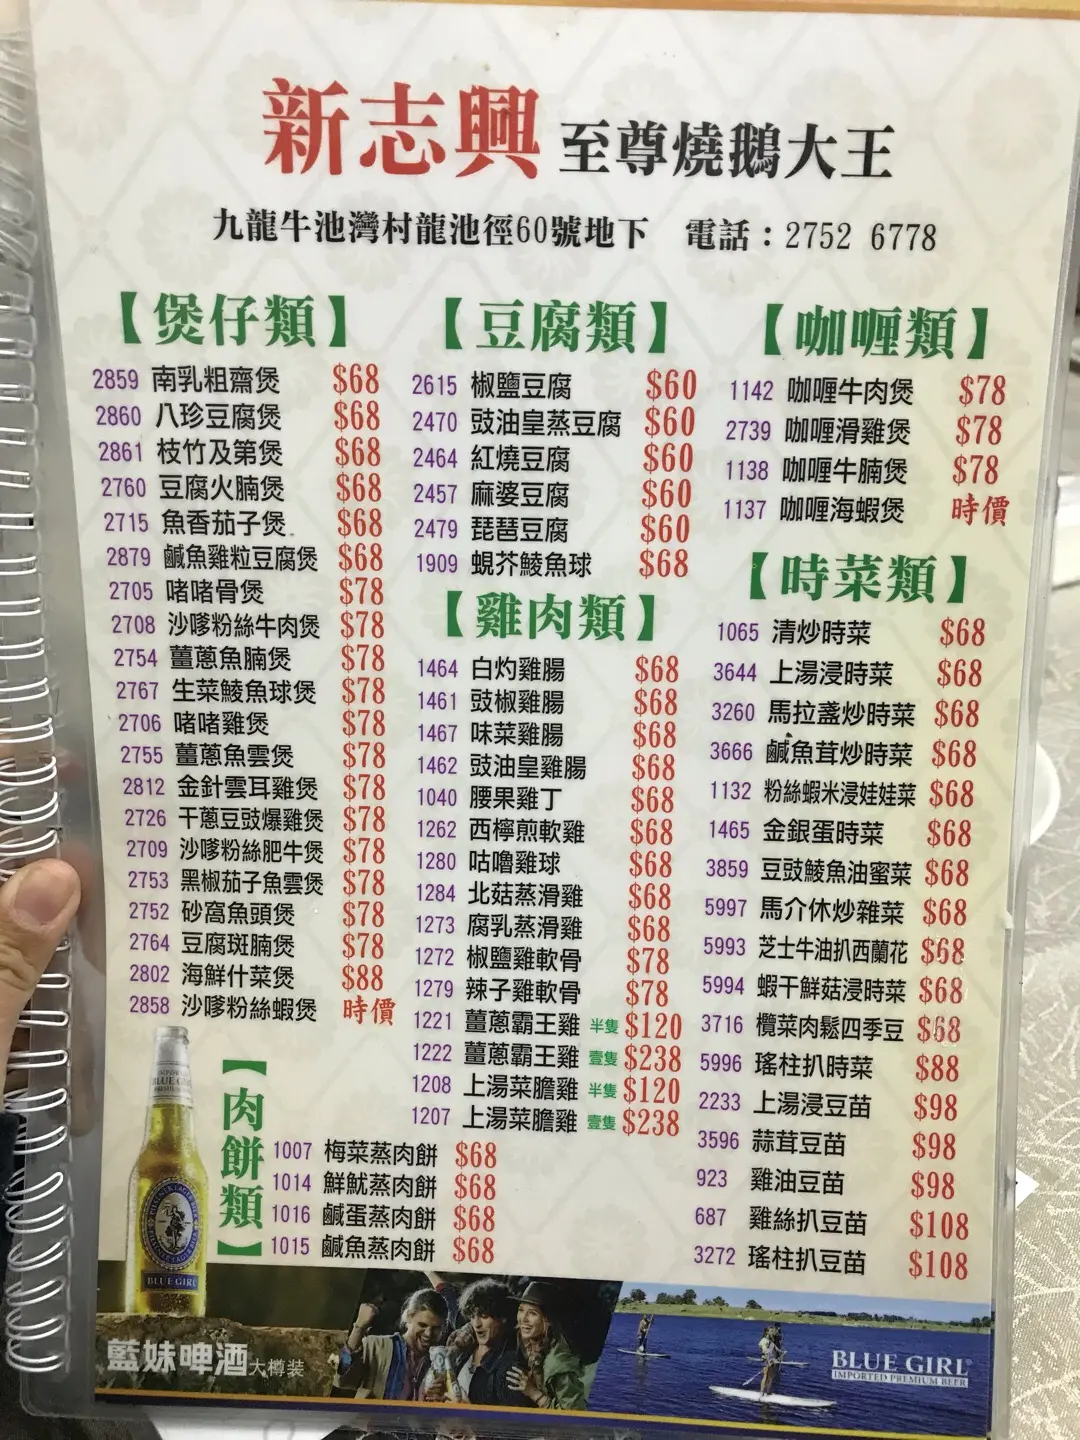 新志興 至尊燒鵝大王
九龍牛池灣村龍池徑60號地下 電話：2752 6778
【煲仔類】
2859 南乳粗齋煲 $68
2860 八珍豆腐煲 $68
2861 枝竹及第煲 $68
2760 豆腐火腩煲 $68
2715 魚香茄子煲 $68
2879 鹹魚雞粒豆腐煲 $68
2705 啫啫骨煲 $78
2708 沙嗲粉絲牛肉煲 $78
2754 薑蔥魚腩煲 $78
2767 生菜鯪魚球煲 $78
2706 啫啫雞煲 $78
2755 薑蔥魚雲煲 $78
2812 金針雲耳雞煲 $78
2726 干蔥豆豉爆雞煲 $78
2709 沙嗲粉絲肥牛煲 $78
2753 黑椒茄子魚雲煲 $78
2752 砂窩魚頭煲 $78
2764 豆腐斑腩煲 $78
2802 海鮮什菜煲 $88
2858 沙嗲粉絲蝦煲 時價
【肉餅類】
1007 梅菜蒸肉餅 $68
1014 鮮魷蒸肉餅 $68
1016 鹹蛋蒸肉餅 $68
1015 鹹魚蒸肉餅 $68
【豆腐類】
2615 椒鹽豆腐 $60
2470 豉油皇蒸豆腐 $60
2464 紅燒豆腐 $60
2457 麻婆豆腐 $60
2479 琵琶豆腐 $60
1909 蜆芥鯪魚球 $68
【雞肉類】
1464 白灼雞腸 $68
1461 豉椒雞腸 $68
1467 味菜雞腸 $68
1462 豉油皇雞腸 $68
1040 腰果雞丁 $68
1262 西檸煎軟雞 $68
1280 咕嚕雞球 $68
1284 北菇蒸滑雞 $68
1273 腐乳蒸滑雞 $68
1272 椒鹽雞軟骨 $78
1279 辣子雞軟骨 $78
1221 薑蔥霸王雞 半隻 $120
1222 薑蔥霸王雞 壹隻 $238
1208 上湯菜膽雞 半隻 $120
1207 上湯菜膽雞 壹隻 $238
【咖喱類】
1142 咖喱牛肉煲 $78
2739 咖喱滑雞煲 $78
1138 咖喱牛腩煲 $78
1137 咖喱海蝦煲 時價
【時菜類】
1065 清炒時菜 $68
3644 上湯浸時菜 $68
3260 馬拉盞炒時菜 $68
3666 鹹魚茸炒時菜 $68
1132 粉絲蝦米浸娃娃菜 $68
1465 金銀蛋時菜 $68
3859 豆豉鯪魚油蜜菜 $68
5997 馬介休炒雜菜 $68
5993 芝士牛油扒西蘭花 $68
5994 蝦干鮮菇浸時菜 $68
3716 欖菜肉鬆四季豆 $68
5996 瑤柱扒時菜 $88
2233 上湯浸豆苗 $98
3596 蒜茸豆苗 $98
923 雞油豆苗 $98
687 雞絲扒豆苗 $108
3272 瑤柱扒豆苗 $108
BLUE GIRL
藍妹啤酒 大樽裝
BLUE GIRL
IMPORTED PREMIUM BEER